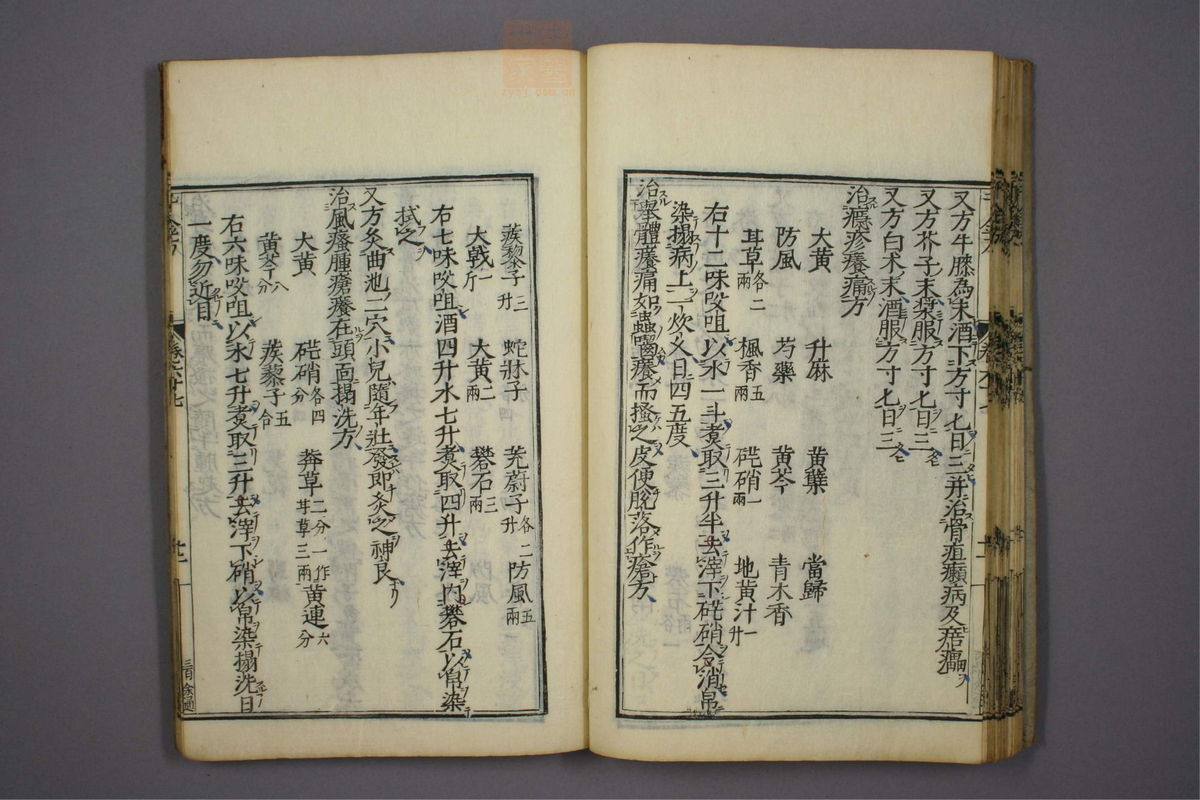 又方牛膝為末酒下方寸匕日三并治骨疽癲病及㾦㿔
又方芥子末漿服方寸匕日三
又方白朮末酒服方寸匕日三
治癮疹癢痛方
大黃 升麻 黃蘗 當歸
防風 芍藥 黃芩 青木香
甘草各二兩 楓香五兩 芒硝一兩 地黃汁一升
右十二味㕮咀以水一斗煮取三升半去滓下芒硝令消帛
染搨病上一炊久日四五度
治舉體癢痛如蟲嚙癢而搔之皮便脫落作瘡方
蒺藜子三升 蛇牀子 茺蔚子各二升 防風五兩
大戟一斤 大黃二兩 礬石三兩
右七味㕮咀酒四升水七升煮取四升去滓內礬石以帛染
拭之
又方灸曲池二穴小兒隨年壯發即灸之神良
治風瘙腫瘡癢在頭面搨洗方
大黃 芒硝各四分 莽草二分一作甘草三兩 黃連六分
黃芩八分 蒺藜子五合
右六味㕮咀以水七升煮取三升去滓下硝以帛染搨洗日
一度勿近目